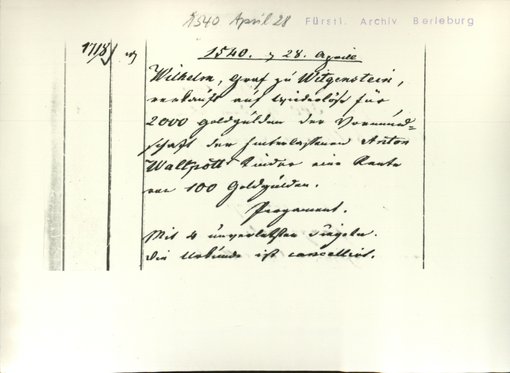 1540 April 28 Fürstl. Archiv Berleburg
1718
1540. 28. Aprill
Wilhelm, Graf zu Witgenstein,
verkauft auf Wiederlöse für
2000 Goldgülden der Vormund=
schaft der hinterlassenen Anton
Waltpott Kinder eine Rente
von 100 Goldgülden.
Pergament.
Mit 4 unverletzten Siegeln.
Die Urkunde ist cancellirt.